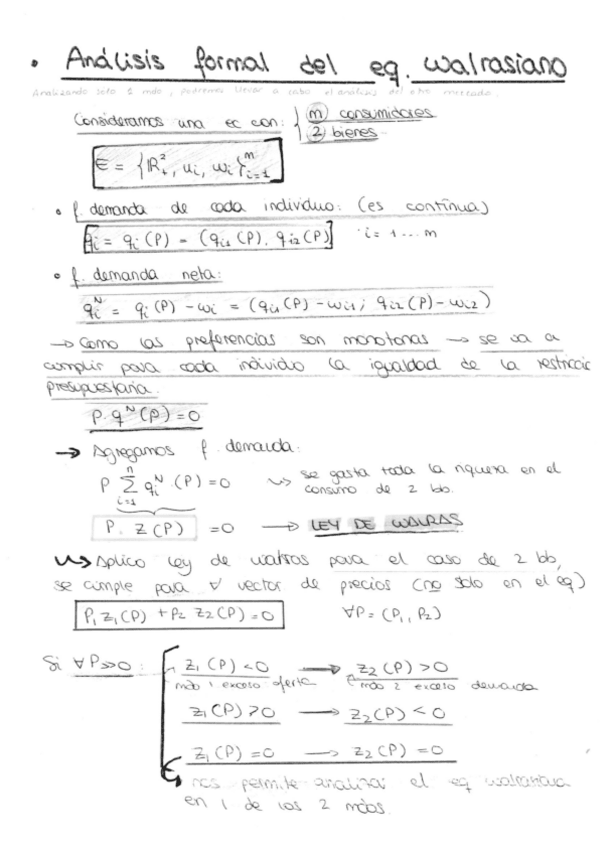 • Análisis formal del eq. walrasiano
Analizando solo 1 mdo, podremos llevar a cabo el análisis del otro mercado.
Consideramos una ec con: { m consumidores
2 bienes
E = {ℝ²₊, uᵢ, wᵢ}ᵐᵢ₌₁
• f. demanda de cada individuo: (es contínua)
qᵢ = qᵢ(P) = (qᵢ₁(P), qᵢ₂(P)) i = 1 ... m
• f. demanda neta:
qᵢᴺ = qᵢ(P) - wᵢ = (qᵢ₁(P) - wᵢ₁; qᵢ₂(P) - wᵢ₂)
→ Como las preferencias son monotonas → se va a
cumplir para cada individuo la igualdad de la restricic
presupuestaria.
P. qᴺ(P) = 0
→ Agregamos f. demanda:
P Σⁿᵢ₌₁ qᵢᴺ.(P) = 0 ↝ se gasta toda la riqueza en el
consumo de 2 bb.
P. Z(P) = 0 → LEY DE WALRAS
↝ Aplico ley de walras para el caso de 2 bb,
se cumple para ∀ vector de precios (no solo en el eq)
P₁z₁(P) + P₂ z₂(P) = 0 ∀P = (P₁, P₂)
Si ∀P≫0: z₁(P) < 0 → z₂(P) > 0
mdo 1 exceso oferta mdo 2 exceso demanda
z₁(P) > 0 → z₂(P) < 0
z₁(P) = 0 → z₂(P) = 0
nos permite analizar el eq walrasiano
en 1 de los 2 mdos.